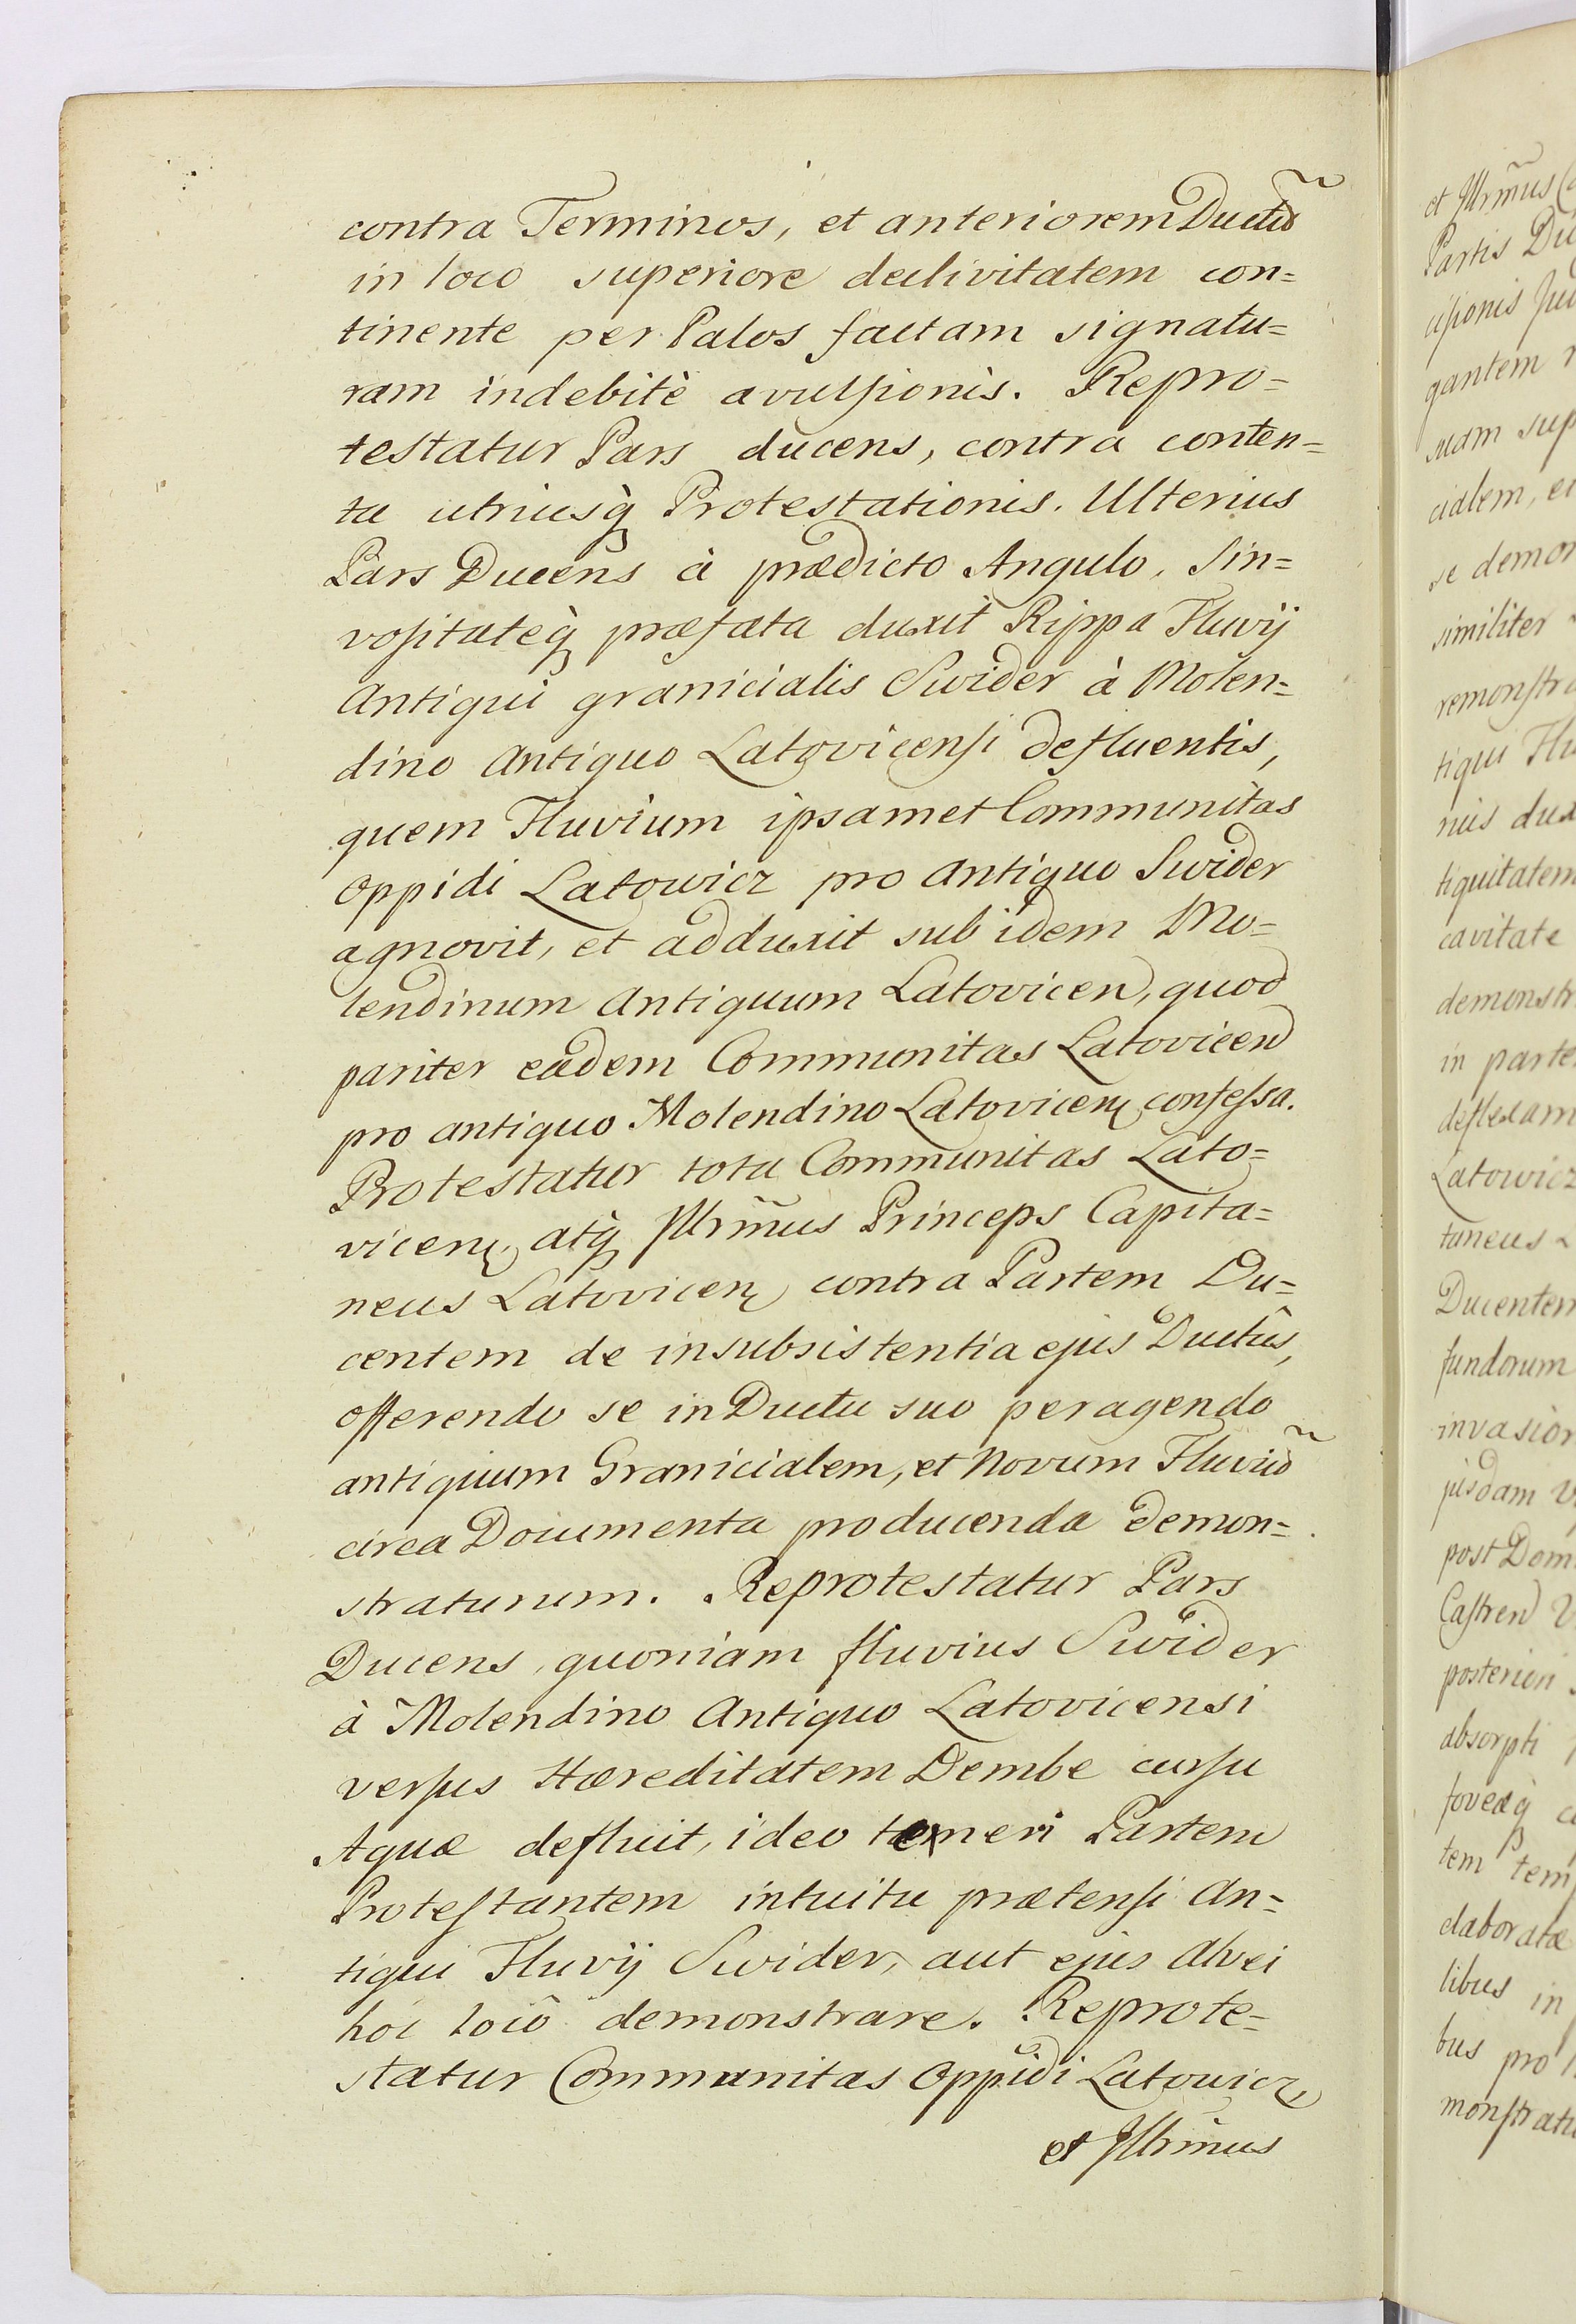 contra Terminos, et anteriorem Ductũ
in loco superiore declivitatem con=
tinente per Palos factam signatu=
ram indebitè avulsionis. Repro=
testatur Pars ducens, contra conten=
ta utriusq̀ Protestationis. Ulterius
Pars Ducens à prædicto Angulo, Sin=
vositateq̀ præfata duxit Rippa Fluvij
Antiqui granicialis Swider à Molen=
dino Antiquo Latovicensi defluentis,
quem Fluvium ipsamet Communitas
Oppidi Latowicz pro Antiquo Swider
agnovit, et adduxit sub idem Mo=
lendinum Antiquum Latovicen, quod
pariter eadem Communitas Latovicen
pro antiquo Molendino Latovicen confessa.
Protestatur tota Communitas Lato=
vicen, atq̀ Jllrm̃us Princeps Capita=
neus Latovicen contra Partem Du=
centem de insubsistentia ejus Ductûs,
offerendo se in Ductu suo peragendo
antiquum Granicialem, et Novum Fluviũ
circa Documenta producenda demon=
straturum. Reprotestatur Pars
Ducens, quoniam fluvius Swider
à Molendino Antiquo Latovicensi
versus Hæreditatem Dembe cursu
Aquæ defluit, ideo temeri Partem
Protestantem intuitu prætensi An=
tiqui Fluvij Swider, aut ejus Alvei
hoc locô demonstrare. Reprote=
statur Communitas Oppidi Latowicz,
et Jllrm̃us
et Jllrm̃us
Partis
gantem
cialem,
se
similiter
tiqui
tiquitatem
cavitate
in parte
deflexam
Latowicz
taneus
Ducentem
fundorum
post
posteriori
absorpti
foveæq̀
tem
elaboratæ
libus in
bus pro